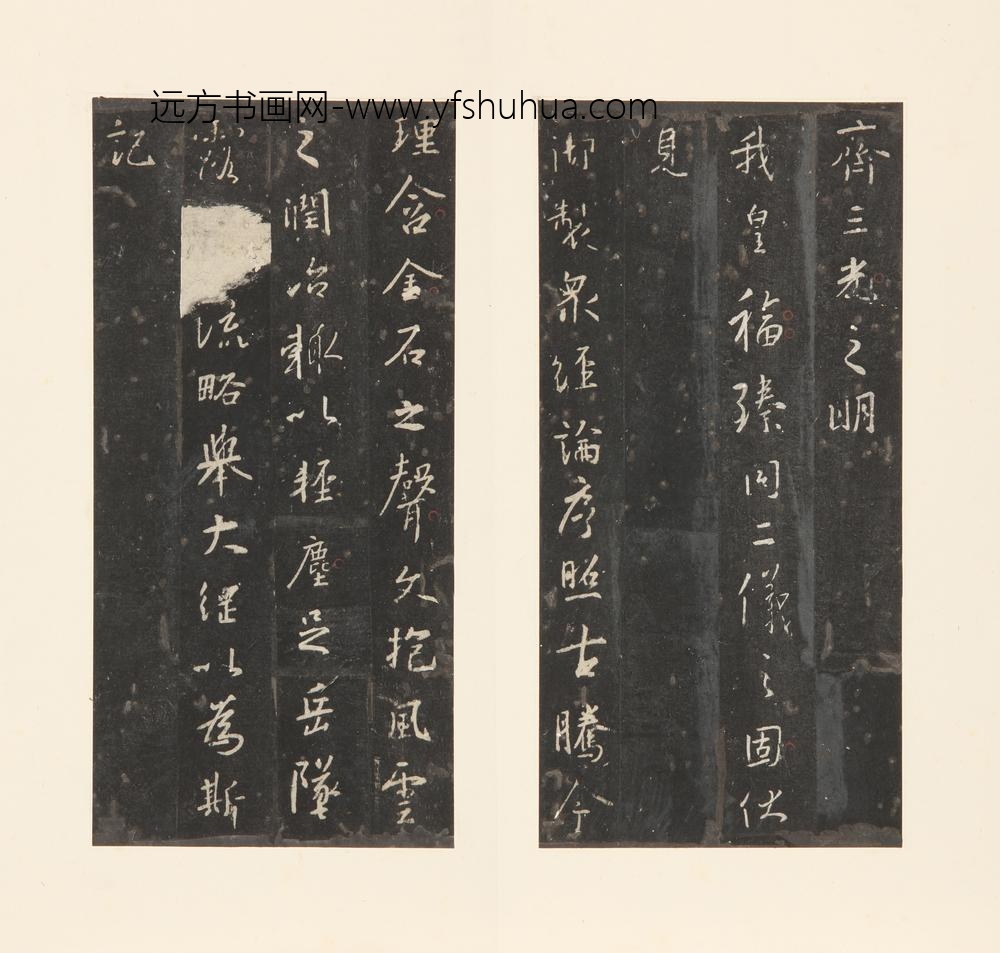 远方书画网-www.yfshuhua.com
齊三光之明
我皇福臻同二儀之固伏
見
御製衆經論序照古騰今
理含金石之聲文抱風雲
之潤治輙以輕塵足岳墜
露流略舉大綱以爲斯
記